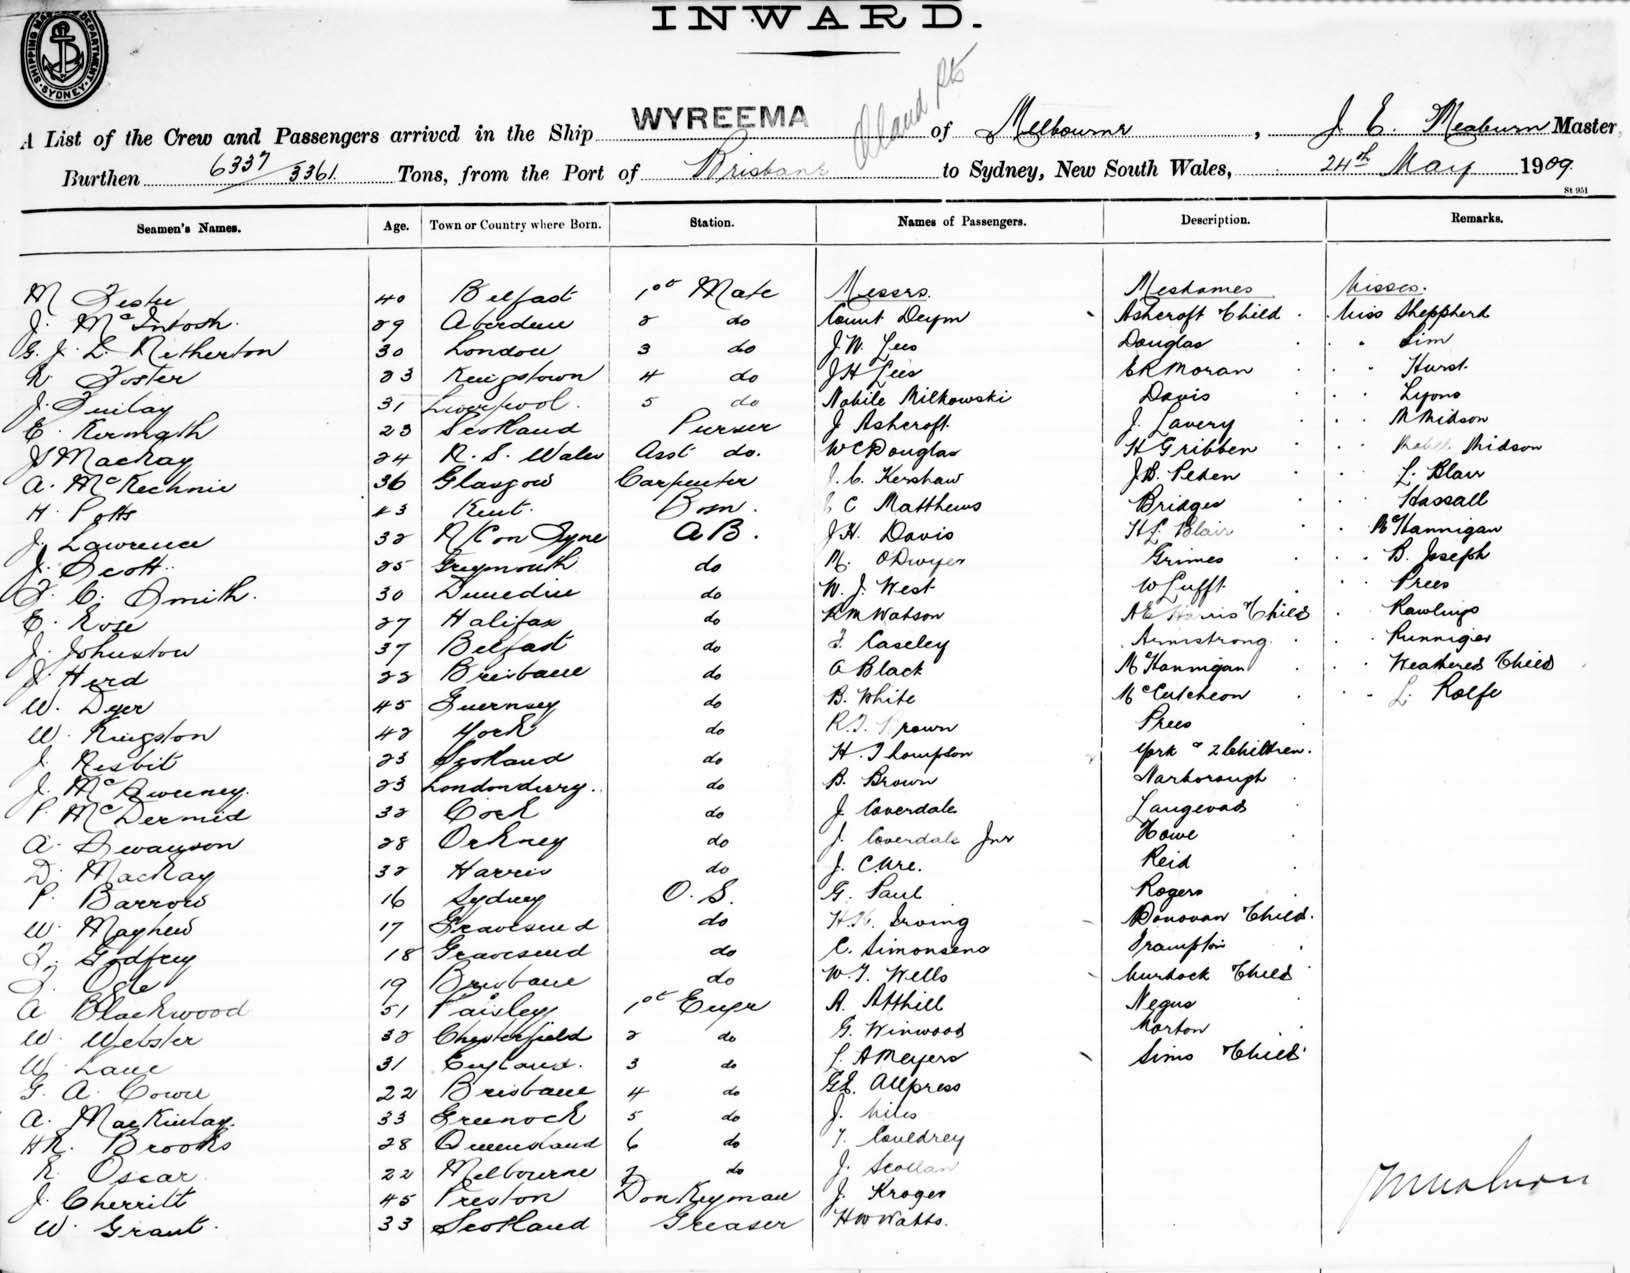 INWARD.
SHIPPING MASTER'S DEPARTMENT SYDNEY
A List of the Crew and Passengers arrived in the Ship WYREEMA of Melbourne, J. E. Meaburn Master
Burthen 6337/3361 Tons, from the Port of Brisbane to Sydney, New South Wales, 24th May 1909.
St 951
Seamen's Names. Age. Town or Country where Born. Station. Names of Passengers. Description. Remarks.
M 40 Belfast 1st Mate Messrs. Mesdames Misses.
J. McIntosh. 29 Aberdeen 2 do Count Deym Ashcroft & Child Miss Sheppherd
G. J. L. Netherton 30 London 3 do J. W. Lees Douglas " Sim
R Foster 23 Kingstown 4 do J H Lees E R Moran " Hurst
J. Finlay 31 Liverpool. 5 do Nobile Milkowski Davis " Lyons
E. Kermath 23 Scotland Purser J Ashcroft. J. Lavery " M Midson
J Mackay 24 N. S. Wales Asst do. W C Douglas H Gribben " Midson
A. McKechnie 36 Glasgow Carpenter J. C. Kershaw J. B. Peden " L. Blair
H. Potts 43 Kent. Bosn. C Matthews Bridges " Hassall
J. Lawrence 32 N/C on Tyne A B. J. H. Davis H L Blair " McHannigan
J. Scott. 25 Greymouth do M. O'Dwyer Grimes " B. Joseph
F. C. Smith. 30 Dunedin do W. J. West W Lufft " Prees
E. Rose 27 Halifax do R M Watson A E Harris & Child " Rawlings
J. Johnston 37 Belfast do F. Caseley Armstrong
J. Herd 22 Brisbane do A Black McHannigan " Weathered & Child
W. Dyer 45 Guernsey do B. White McCutcheon " L. Rolfe
W. Kingston 42 York do R. T. Brown Prees
J. Nesbit 23 Scotland do H. Thompson York & 2 Children.
J. McSweeney. 23 Londonderry. do B. Brown Narborough
P. McDermid 32 Cork do J. Coverdale
A. Swanson 28 Orkney do J. Coverdale Jnr Howe
D. Mackay 32 Harris do J. Reid
P. Barrow 16 Sydney O. S. G. Paul Rogers
W. Mayhew 17 Gravesend do Irving Donovan & Child.
F. Godfrey 18 Gravesend do C. Simonsens Frampton
F. Ogle 19 Brisbane do W. T. Wells Murdock & Child
A Blackwood 51 Paisley 1st Engr A. Atthill Negus
W. Webster 32 Chesterfield 2 do G. Winwood Morton
W Lane 31 England. 3 do L. A Meyers Sims & Child
G. A. Cowie 22 Brisbane 4 do G E. Allpress
A. MacKinlay. 33 Greenock 5 do J. Miles
H R. Brooks 28 Queensland 6 do T. Couldrey
R. Oscar 22 Melbourne 7 do J. Scollan
J. Cherritt 45 Preston Donkeyman J. Kroger
W. Grant. 33 Scotland Greaser H W Watts.